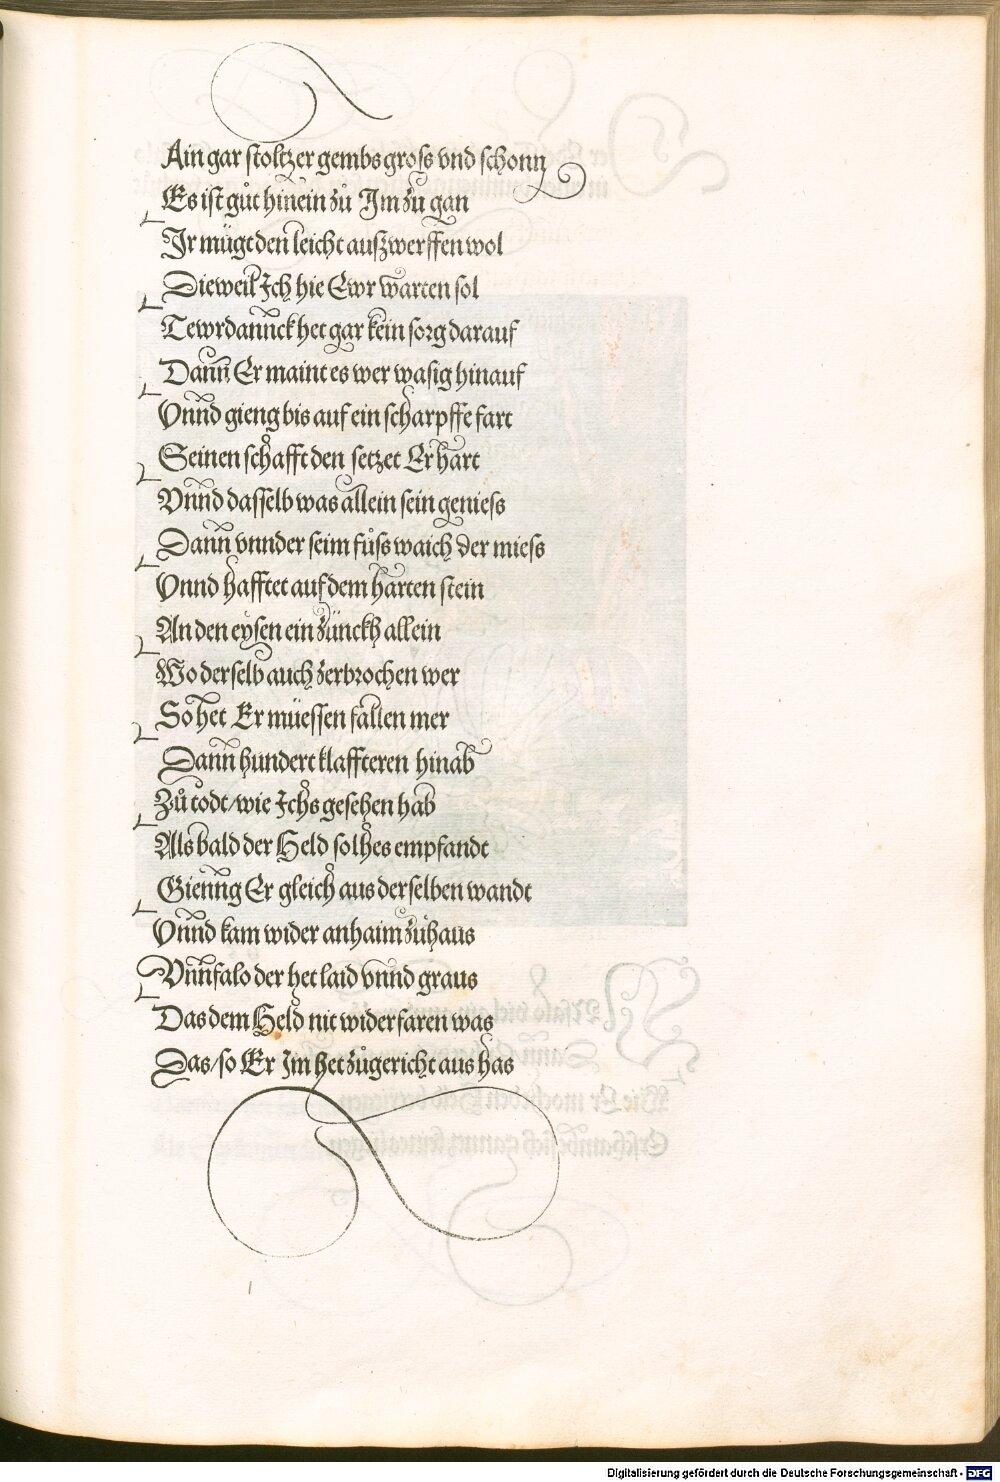 Ain gar stoltzer gembs gross vnd schonn
Es ist gůt hinein zů Im zu gan
Ir mügt den leicht außwerffen wol
Dieweil Ich hie Ewr warten sol
Tewrdannck het gar kein sorg darauf
Dann Er maint es wer wasig hinauf
Vnnd gieng bis auf ein scharpffe fart
Seinen schafft den setzet Er hart
Vnnd dasselb was allein sein geniess
Dann vnnder seim fůss waich der miess
Vnnd hafftet auf dem harten stein
An den eysen ein zünckh allein
Wo derselb auch zerbrochen wer
So het Er müessen fallen mer
Dann hundert klaffteren hinab
Zů todt/wie Ichs gesehen hab
Als bald der Held solhes empfandt
Gienng Er gleich aus derselben wandt
Vnnd kam wider anhaim zůhaus
Vnnfalo der het laid vnnd graus
Das dem Held nit widerfaren was
Das/so Er Im het zůgericht aus has
Digitalisierung gefördert durch die Deutsche Forschungsgemeinschaft - DFG